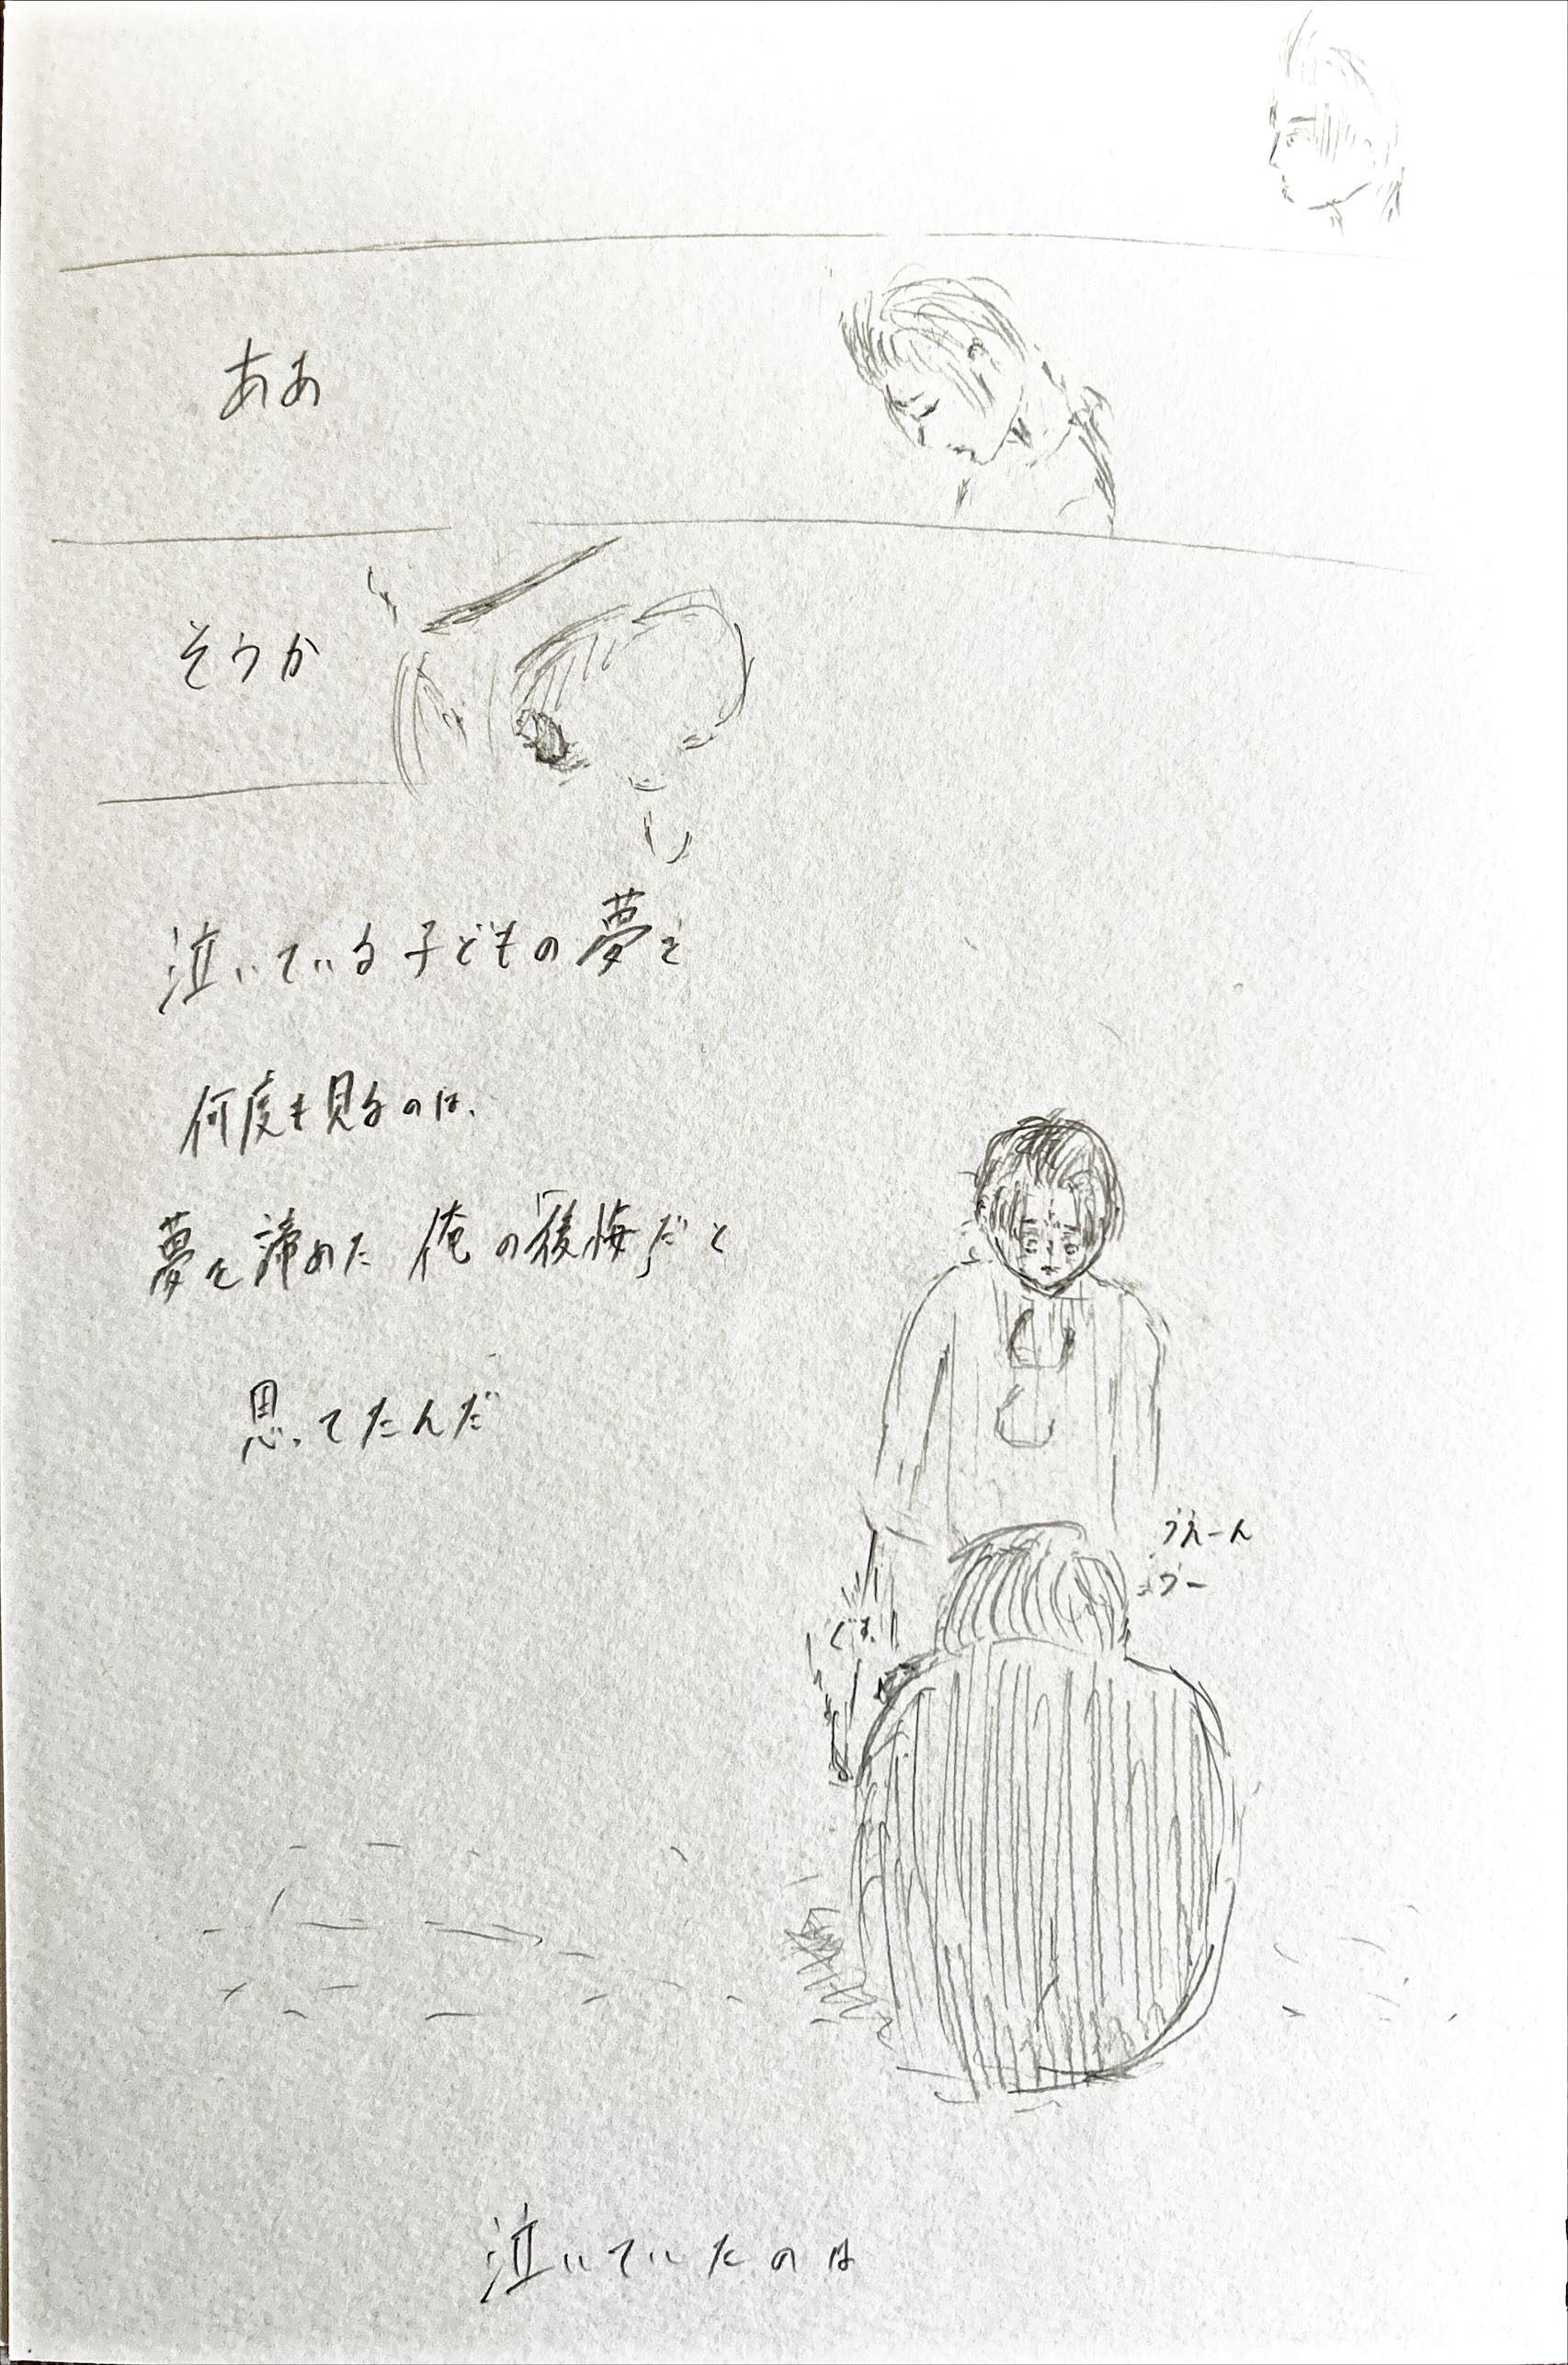 ああ
そうか
泣いている子どもの夢を
何度も見るのは、
夢を諦めた 俺の「後悔」だと
思ってたんだ
うえーん
うー
泣いていたのは